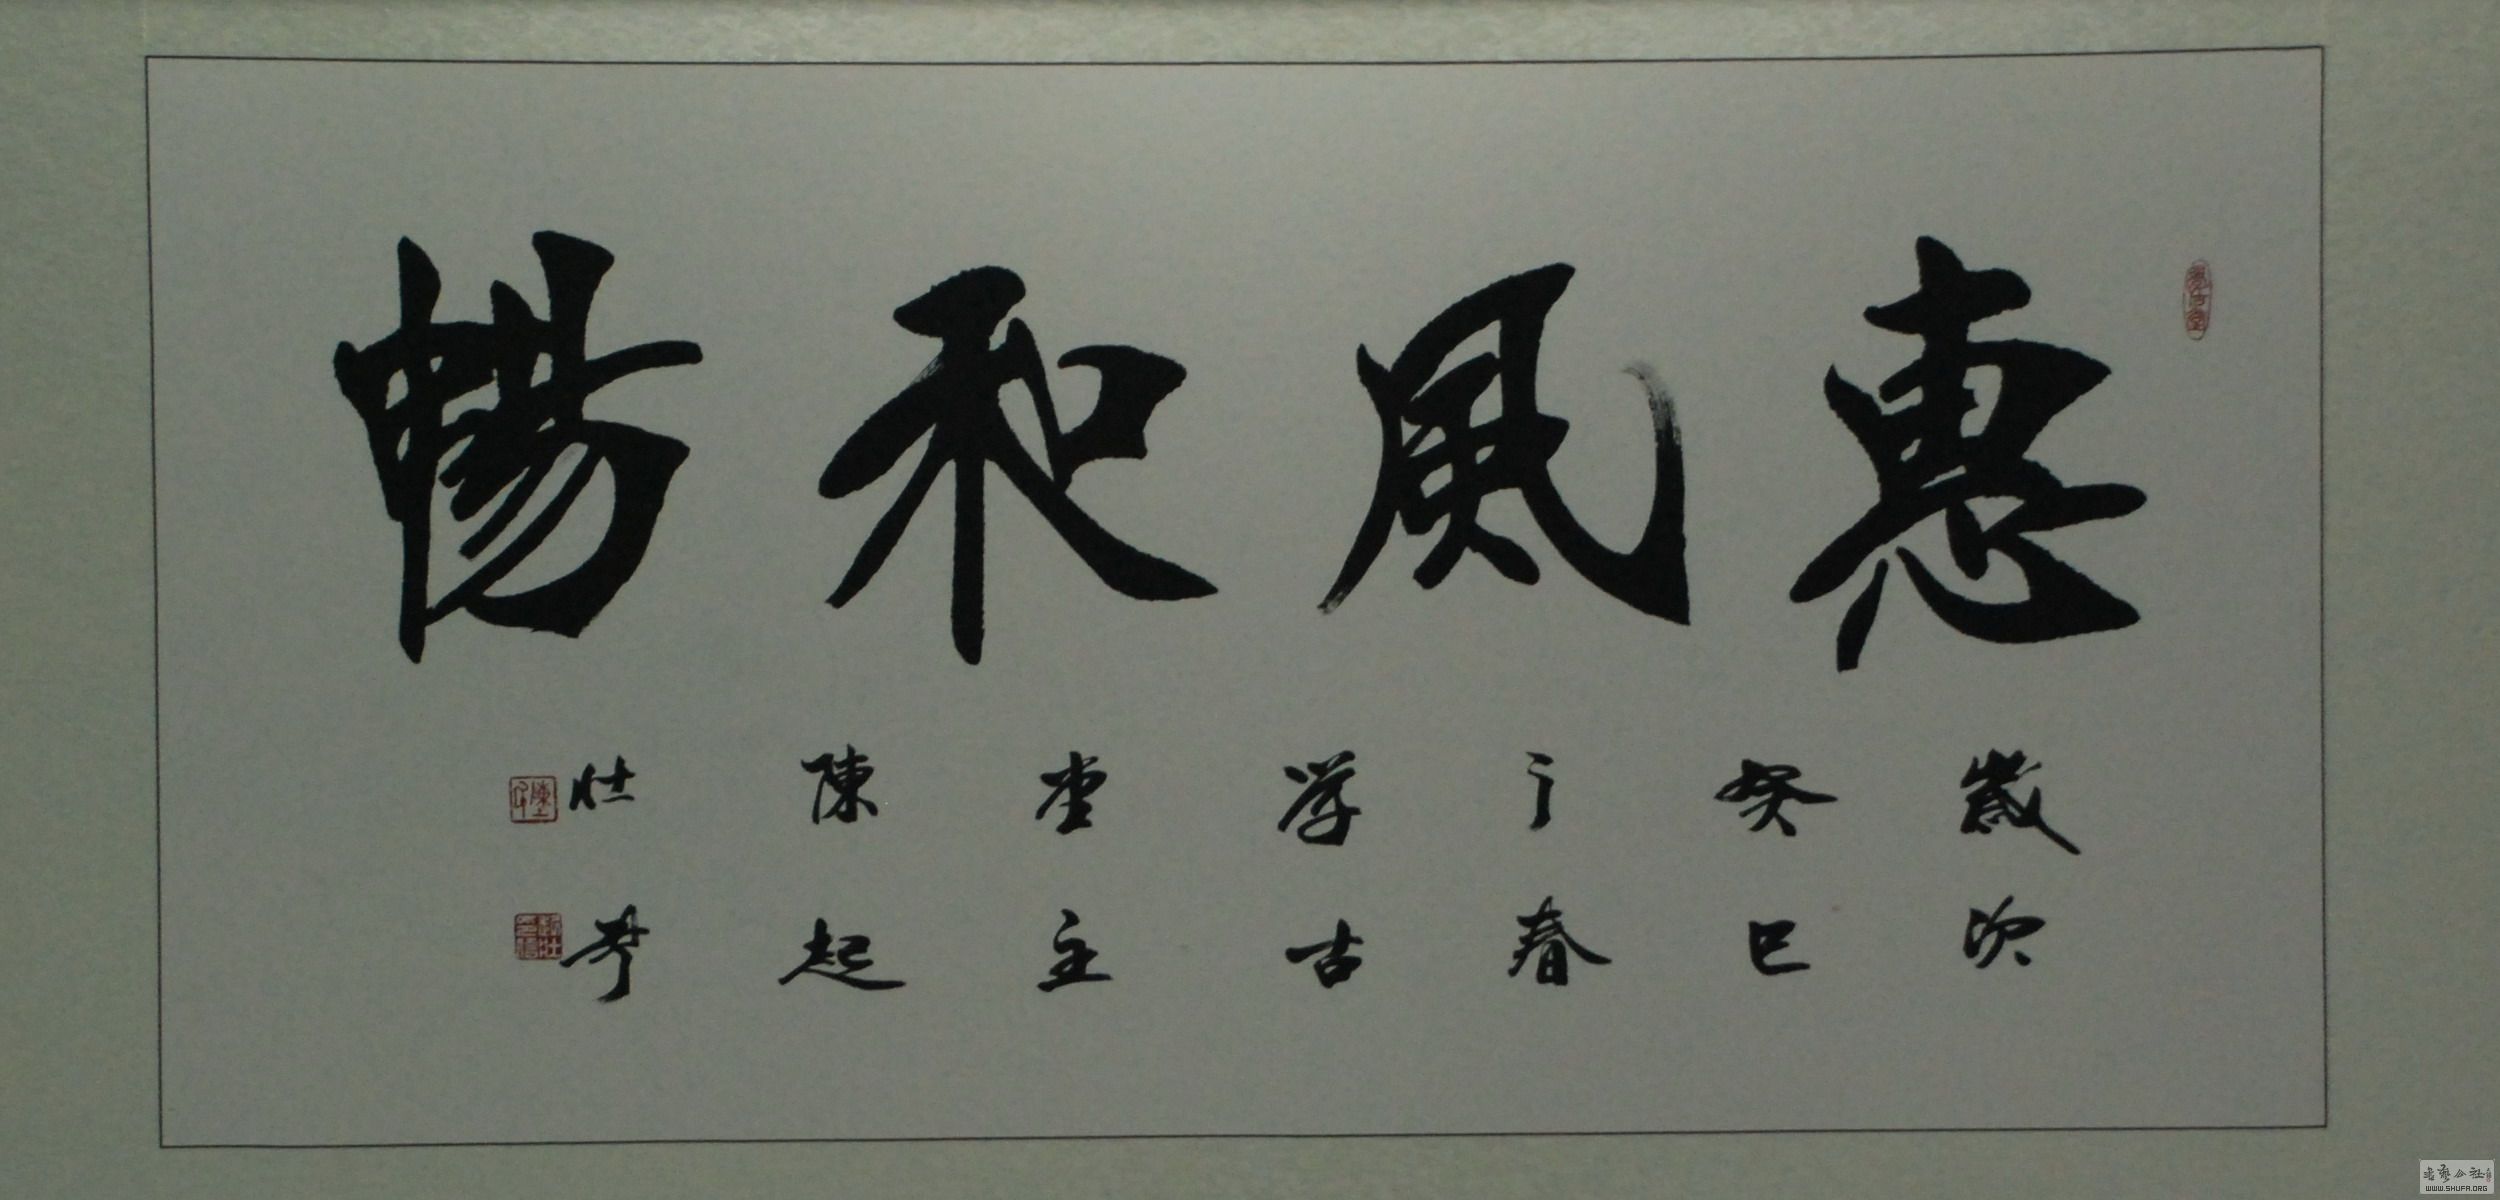 惠風和暢
歲次
癸巳
之春
学古
堂主
陳起
壯书
WWW.SHUFA.ORG